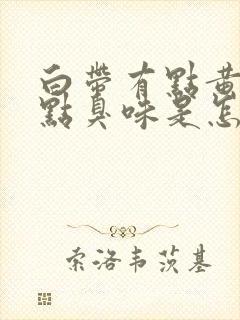 白帶有點黃
點臭味是怎
索洛韦茨基